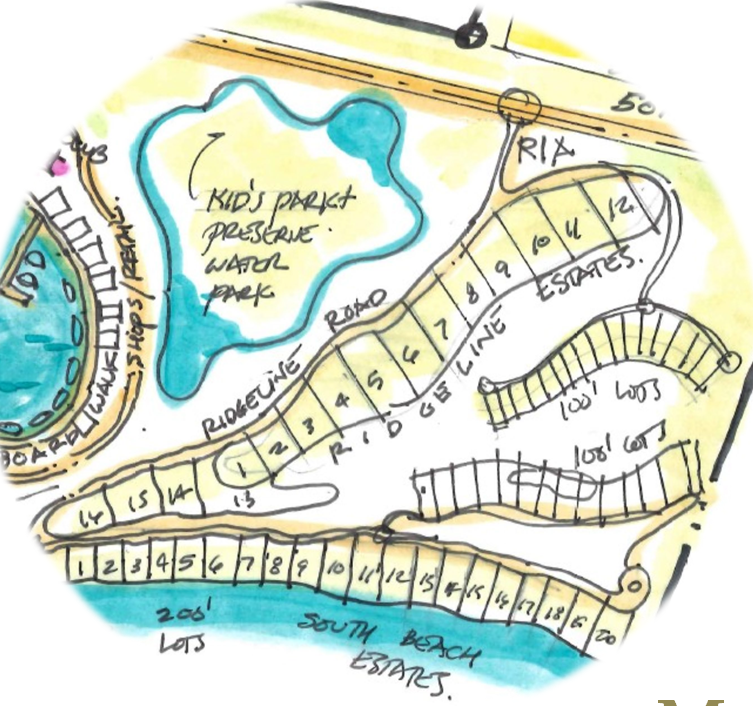 50.
RIA
KID'S PARK +
PRESERVE.
WATER
PARK
SHOPS/
BOARD WALK
RIDGELINE ROAD
RIDGELINE
ESTATES.
1 2 3 4 5 6 7 8 9 10 11 12
13
16 15 14
100' LOTS
100' LOTS
1 2 3 4 5 6 7 8 9 10 11 12 13 14 15 16 17 18 19 20
200'
LOTS
SOUTH BEACH
ESTATES.